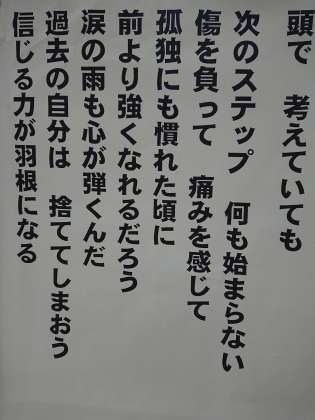 頭で　考えていても
次のステップ　何も始まらない
傷を負って　痛みを感じて
孤独にも慣れた頃に
前より強くなれるだろう
涙の雨も心が弾くんだ
過去の自分は　捨ててしまおう
信じる力が羽根になる